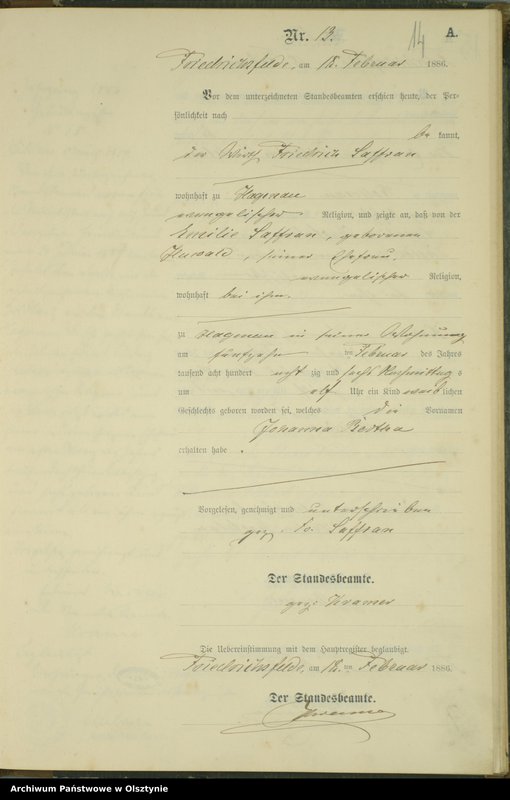 14
Nr. 13.
A.
Friedrichsfelde, am 18. Februar 1886.
Vor dem unterzeichneten Standesbeamten erschien heute, der Per-
sönlichkeit nach
be kannt,
der Wirth Friedrich Saffran
wohnhaft zu
evangelischer Religion, und zeigte an, daß von der
Emilie Saffran, geborenen
seiner Ehefrau,
evangelischer Religion,
wohnhaft bei ihm,
zu in seiner Wohnung
am fünfzehn ten Februar des Jahres
tausend acht hundert acht zig und sechs Nachmittag s
um elf Uhr ein Kind weib lichen
Geschlechts geboren worden sei, welches die Vornamen
Johanna Bertha
erhalten habe.
Vorgelesen, genehmigt und unterschrieben
gez. Fr. Saffran
Der Standesbeamte.
gez. Kramer
Die Uebereinstimmung mit dem Hauptregister beglaubigt.
Friedrichsfelde, am 18. ten Februar 1886.
Der Standesbeamte.
Archiwum Państwowe w Olsztynie